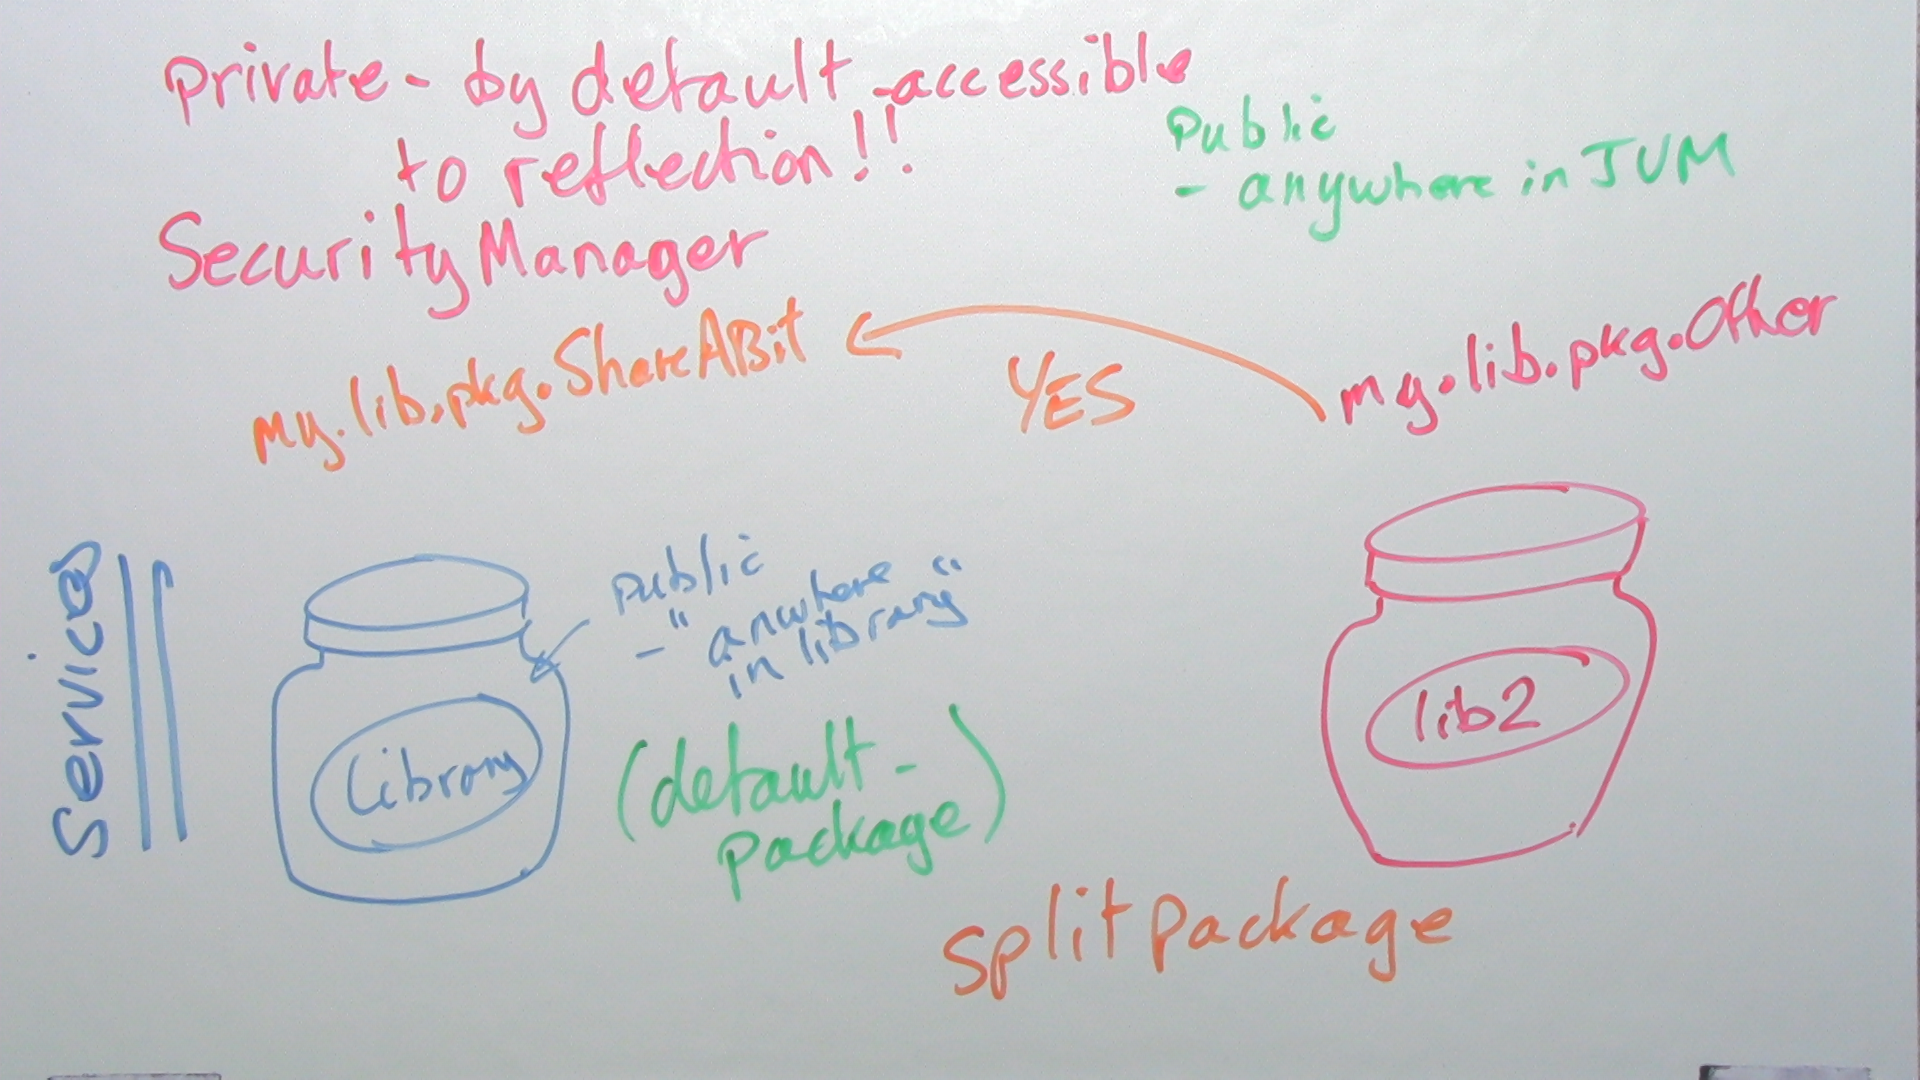 private - by default - accessible
to reflection!!
Security Manager
Public
- anywhere in JVM
my.lib.pkg.ShareABit
YES
my.lib.pkg.Other
Services
public
- "anwhere
in library"
Library
(default -
package)
lib2
split package